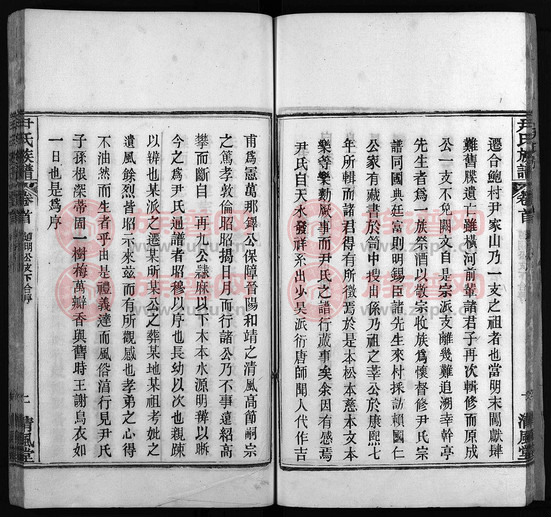 遷合鮑村尹家山乃一支之祖者也當明末闖獻肆
難舊牒遺亡雖橫河前輩諸君子再次輯修而原成
公一支不免闕文自是宗派支離幾難追溯幸幹亭
先生者爲一族祭酒以敬宗收族爲懷督修尹氏宗
譜同國典廷富則明錫臣諸先生來村採訪賴國仁
公家有藏書於笥中搜出係乃祖之莘公於康熙七
年所輯而諸君得有所徵焉於是本松本慈本文本
樂等樂勷厥事而尹氏之譜行蕆事矣余因有感焉
尹氏自天水發祥系出少昊派衍唐師聞人代作吉
甫爲憲萬那鐸公保障晉陽和靖之清風高節嗣宗
之篤孝敦倫昭昭揭日月而行諸公乃不事遠紹高
攀而斷自 再九公隸麻以下木本水源明薄以晰
今之爲尹氏通譜者昭穆以序也長幼以次也親疎
以辨也某派之遷某所某公之葬某地某祖考妣之
遺風餘烈皆昭示來茲而有所觀感也孝弟之心得
不油然而生者乎由是禮義達而風俗淯行見尹氏
子孫根深蒂固一樹梅萬瓣香與舊時王謝烏衣如
一日也是爲序
尹氏族譜
卷首
清風堂
尹氏族譜
卷首
二
清風堂